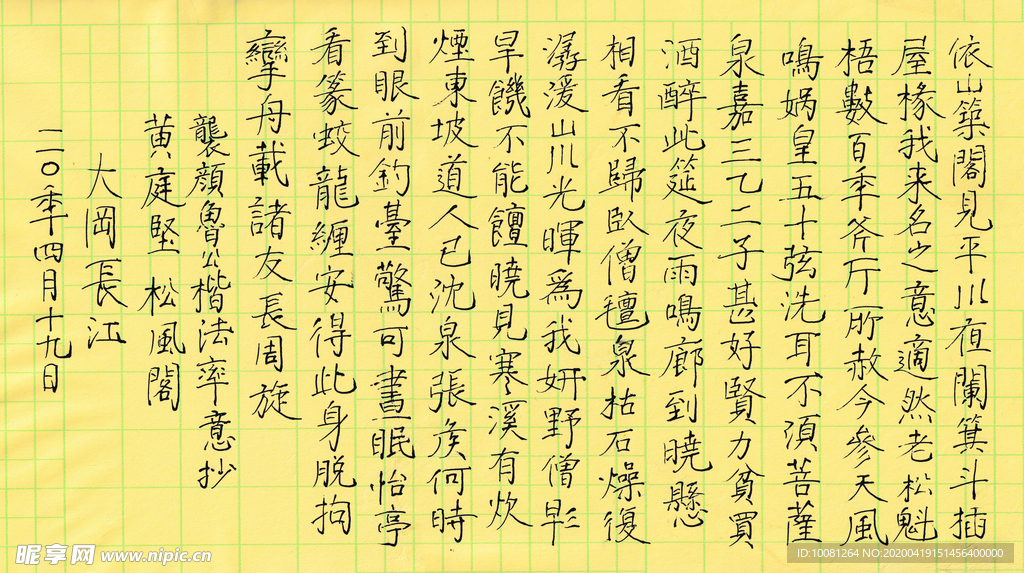 依山築閣見平川夜闌箕斗插
屋椽我来名之意適然老松魁
梧數百年斧斤所赦今參天風
鳴娲皇五十弦洗耳不須菩薩
泉嘉三乙二子甚好賢力貧買
酒醉此筵夜雨鳴廊到曉懸
相看不歸臥僧氊泉枯石燥復
潺湲山川光暉為我妍野僧早
旱饑不能饘曉見寒溪有炊
煙東坡道人已沈泉張矦何時
到眼前釣臺驚可畫眠怡亭
看篆蛟龍纏安得此身脱拘
攣舟載諸友長周旋
襲顏魯公楷法率意抄
黄庭堅松風閣
大岡長江
二〇年四月十九日
昵享网 www.nipic.cn
ID:10081264 NO:20200419151456400000